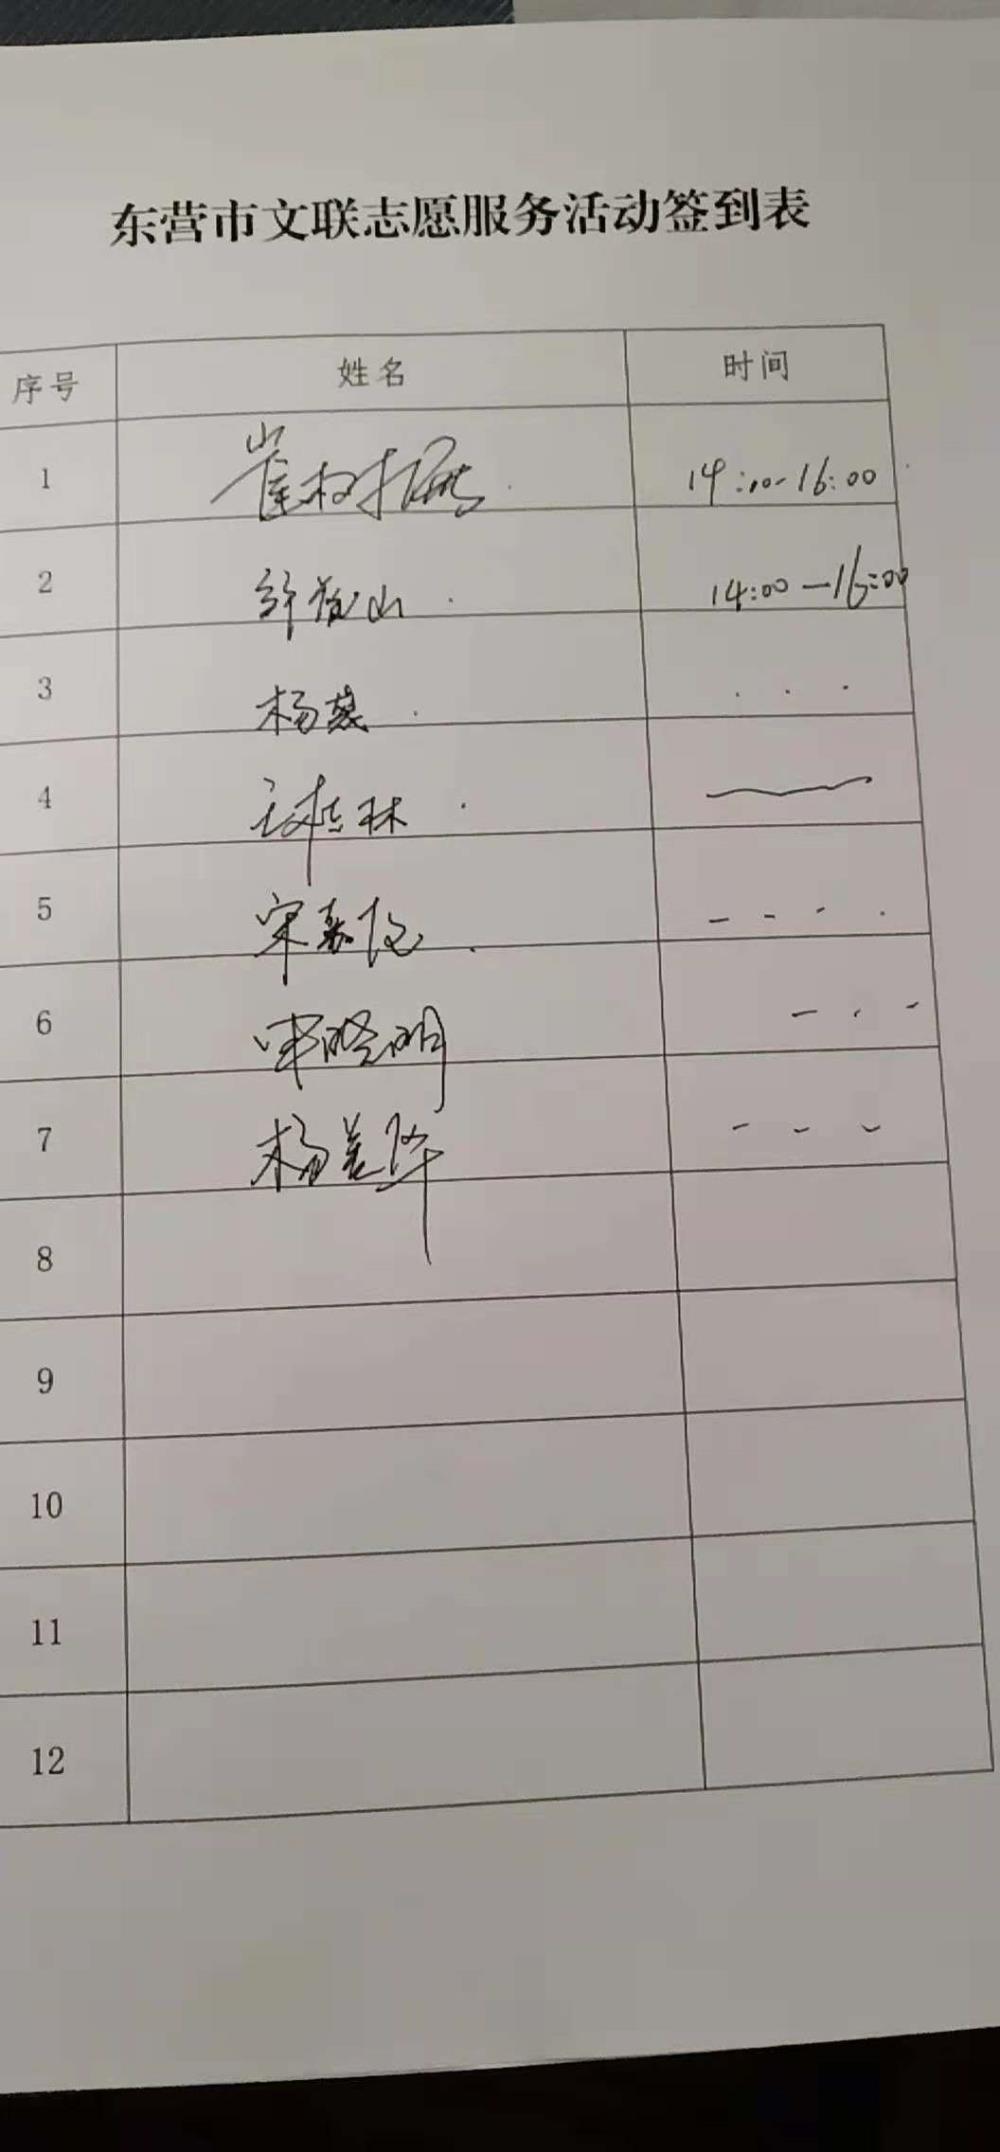 东营市文联志愿服务活动签到表
序号 姓名 时间
1 崔树 14:00-16:00
2 许 山 14:00-16:00
3 杨慧
4 林
5 宋嘉
6 申晓明
7 杨美华
8
9
10
11
12